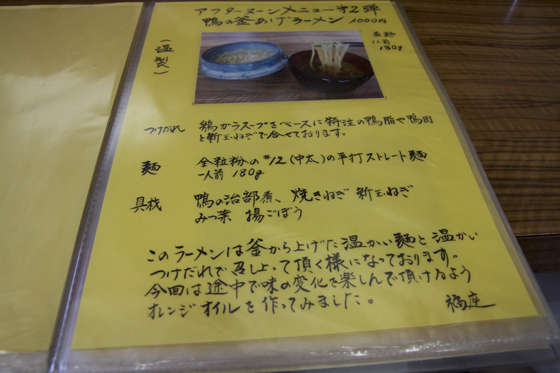 アフターヌーンメニュー才2弾
鴨の釜あげラーメン 1000円
(温製)
麺
1人前
180g
つけだれ 鶏ガラスープをベースに特注の鴨脂や鴨肉
と新玉ねぎで合せております。
麺 全粒粉の#12(中太)の平打ストレート麺
一人前 180g
具材 鴨の治部煮、焼きねぎ 新玉ねぎ
みつ葉 揚ごぼう
このラーメンは釜から上げた温かい麺と温かい
つけだれで召し上って頂く様になっております。
今回は途中で味の変化を楽しんで頂けるよう
オレンジオイルを作ってみました。
福座